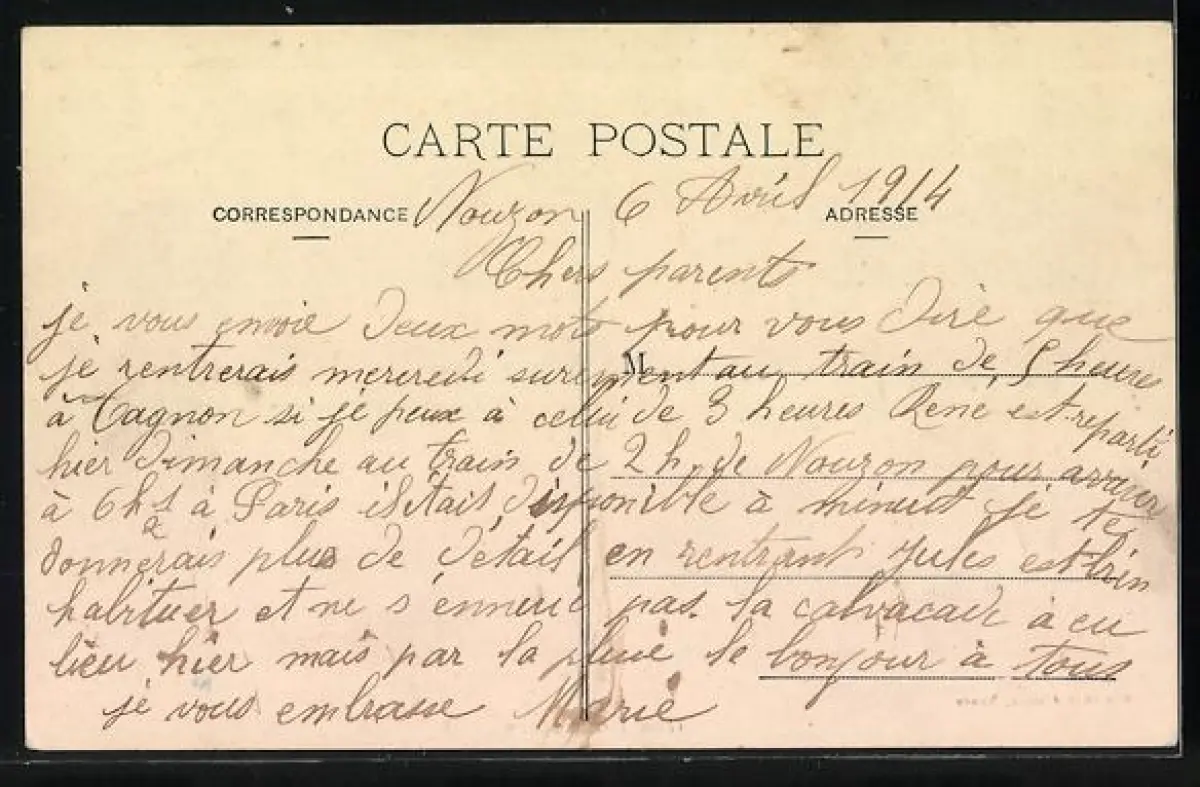 CARTE POSTALE
CORRESPONDANCE
ADRESSE
Nouzon 6 Avril 1914
Chers parents
je vous envoie deux mots pour vous dire que
M
je rentrerais mercredi surement au train de 5 heures
à Cagnon si je peux à celui de 3 heures René est reparti
hier Dimanche au train de 2 h, de Nouzon pour arriver
à 6 h à Paris il était disponible à minuit je te
donnerais plus de détail en rentrant Jules est bien
habituer et ne s'ennuie pas. la calvacade à eu
lieu hier mais par la pluie le bonjour à tous
je vous embrasse Marie